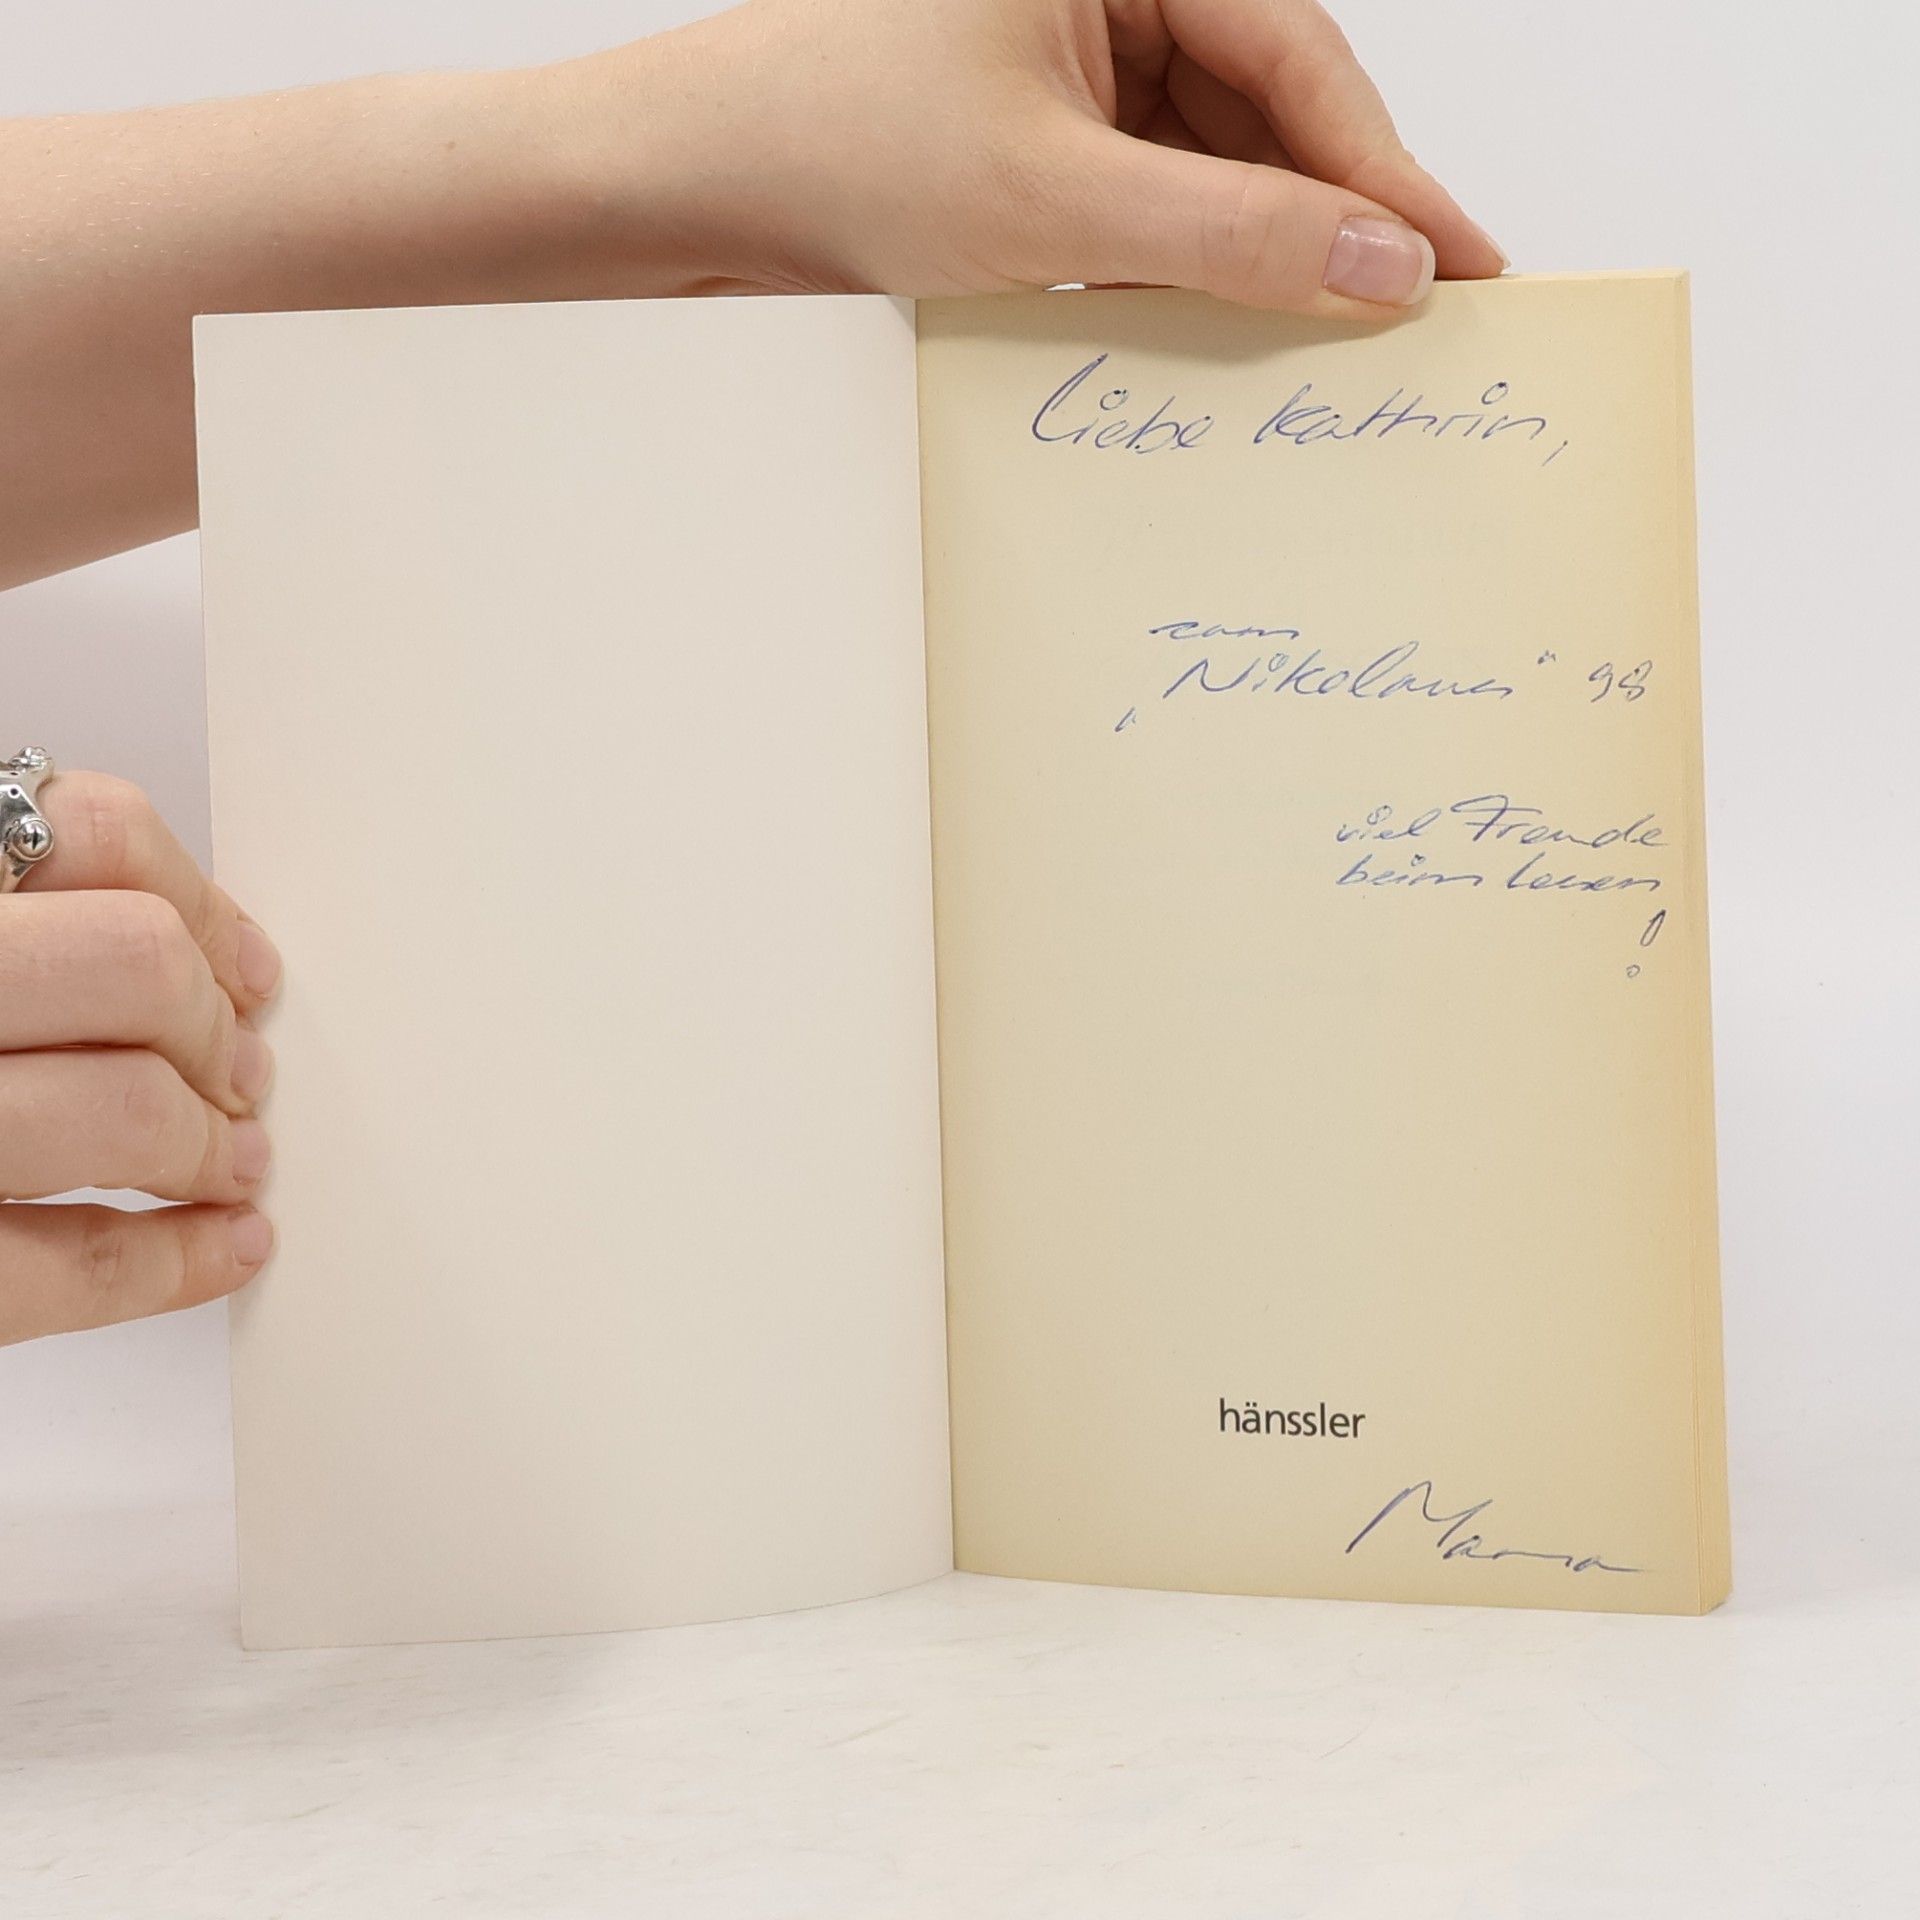 Liebe Kathrin,
zum
„Nikolaus“ 98
viel Freude
beim Lesen
!
hänssler
Mama